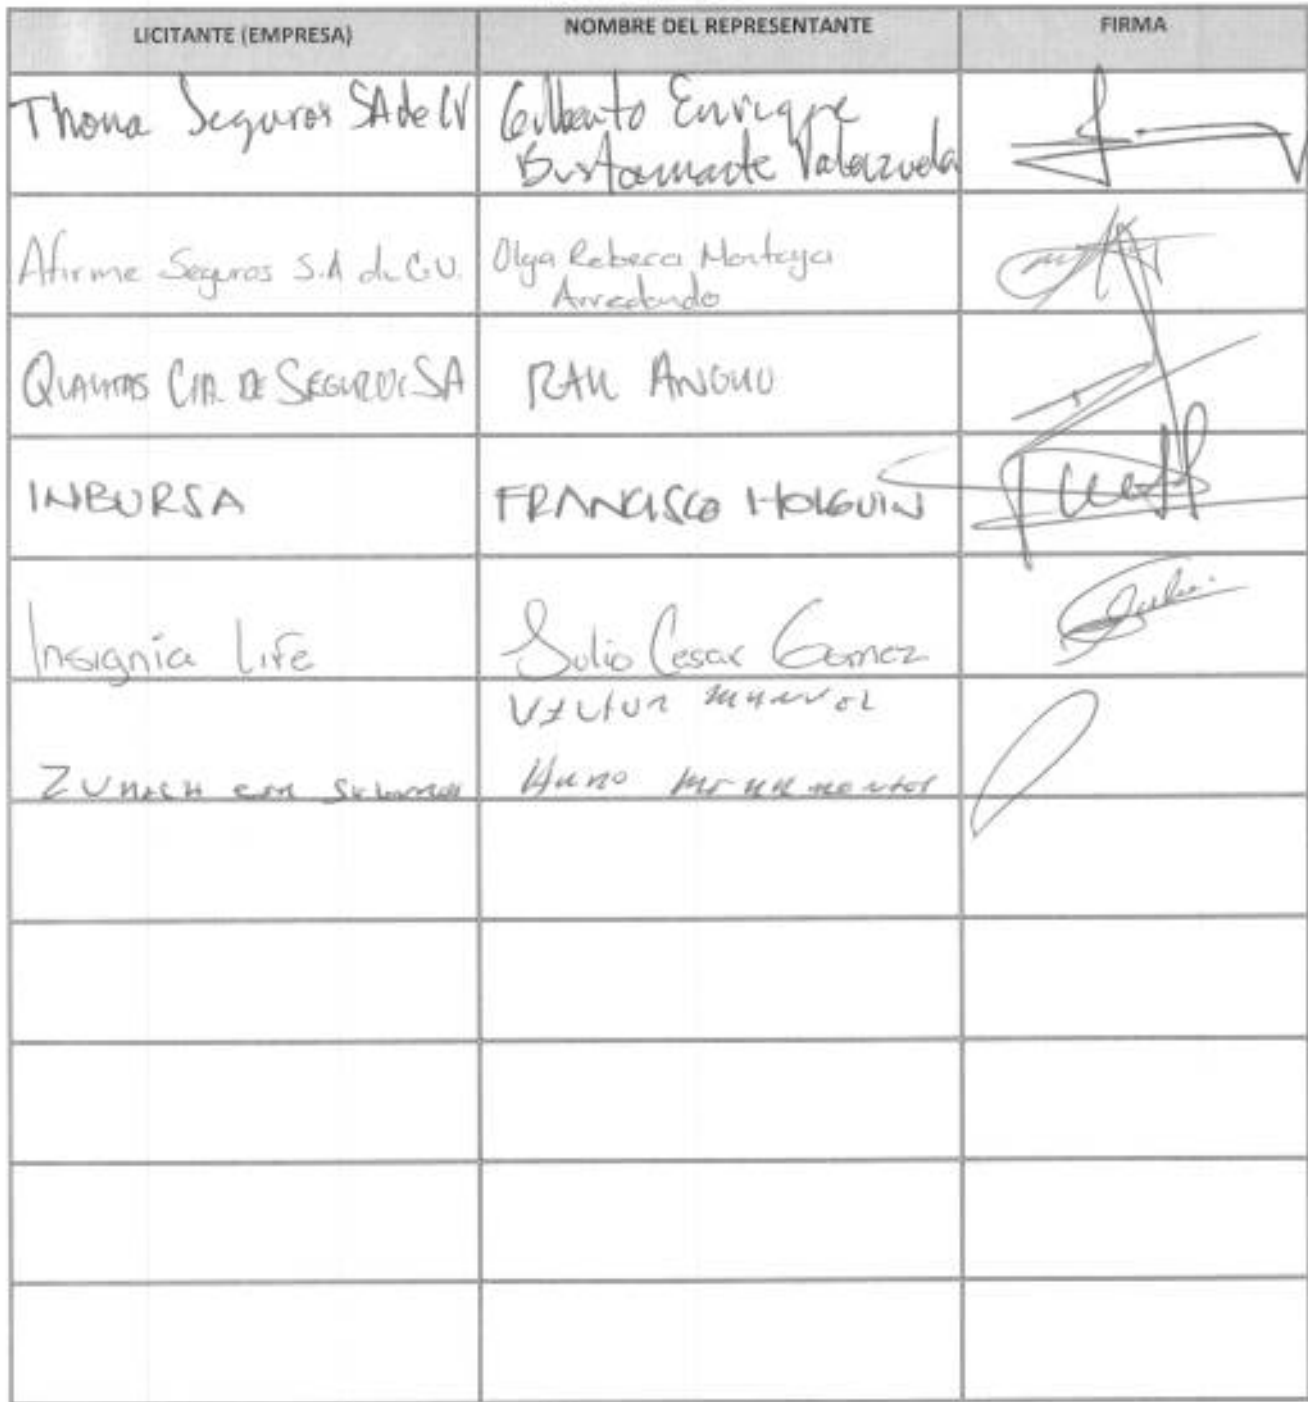 LICITANTE (EMPRESA) NOMBRE DEL REPRESENTANTE FIRMA
Thona Seguros SA de CV Gilberto Enrique
Bustamante Valenzuela
Afirme Seguros S.A de C.V. Olga Rebeca Montoya
Arredondo
QUALITAS CIA. DE SEGUROS SA RAUL ANGULO
INBURSA FRANCISCO HOLGUIN
Insignia Life Julio Cesar Gomez
VICTOR MANUEL
ZURICH